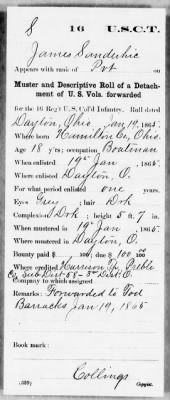 S 16 U.S.C.T.
James Sanderhic
Appears with rank of Pvt on
Muster and Descriptive Roll of a Detach-
ment of U. S. Vols. forwarded
for the 16 Reg't U. S. Col'd Infantry. Roll dated
Dayton, Ohio Jan 19, 1865.
Where born Hamilton Co, Ohio.
Age 18 y'rs; occupation Boatman
When enlisted 19th Jan, 1865.
Where enlisted Dayton, O.
For what period enlisted one years.
Eyes Grey; hair Drk
Complexion Drk; height 5 ft. 7 in.
When mustered in 19th Jan, 1865.
Where mustered in Dayton, O.
Bounty paid $ 100; due $ 100
Where credited Harrison Tp, Preble
Co, Sub Dist 58 - 3d Dist, O.
Company to which assigned
Remarks: Forwarded to Tod
Barracks Jan 19, 1865
Book mark:
Collings
(339) Copyist.